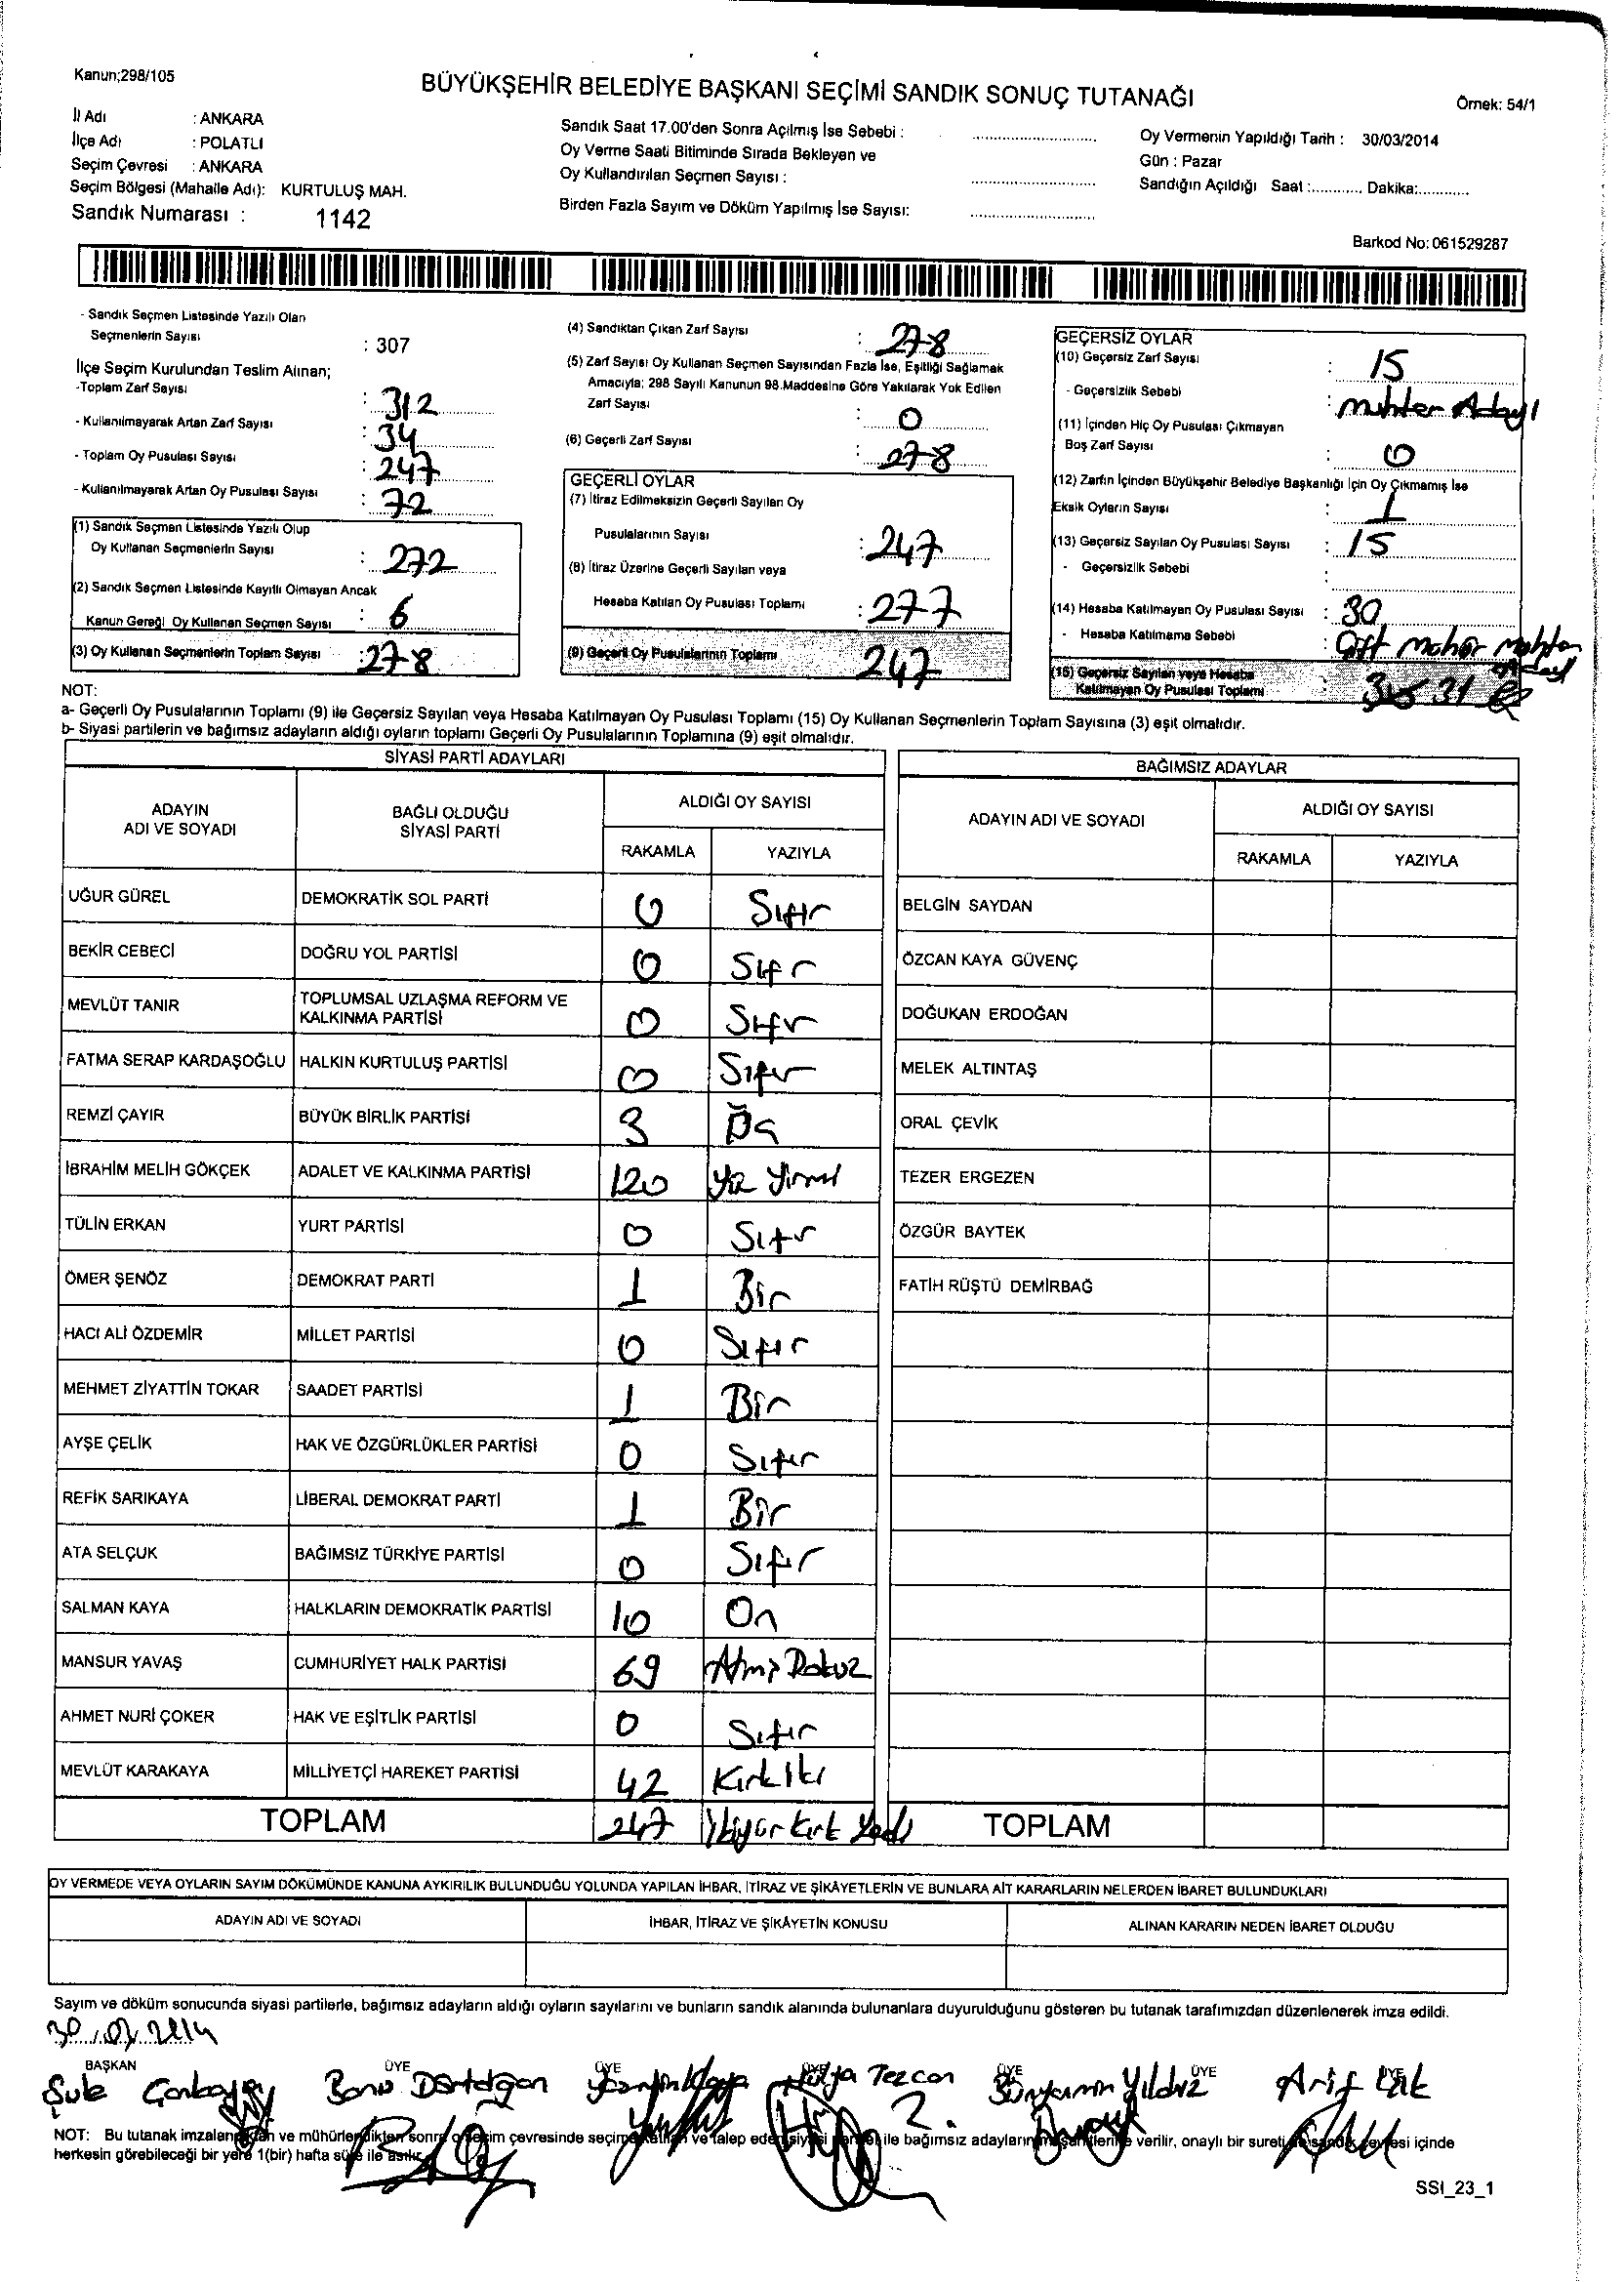 Kanun;298/105
BÜYÜKŞEHİR BELEDİYE BAŞKANI SEÇİMİ SANDIK SONUÇ TUTANAĞI
Örnek: 54/1
İl Adı : ANKARA
İlçe Adı : POLATLI
Seçim Çevresi : ANKARA
Seçim Bölgesi (Mahalle Adı): KURTULUŞ MAH.
Sandık Numarası : 1142
Sandık Saat 17.00'den Sonra Açılmış İse Sebebi :
Oy Verme Saati Bitiminde Sırada Bekleyen ve
Oy Kullandırılan Seçmen Sayısı :
Birden Fazla Sayım ve Döküm Yapılmış İse Sayısı:
Oy Vermenin Yapıldığı Tarih : 30/03/2014
Gün : Pazar
Sandığın Açıldığı Saat :............ Dakika:............
Barkod No: 061529287
- Sandık Seçmen Listesinde Yazılı Olan
Seçmenlerin Sayısı : 307
İlçe Seçim Kurulundan Teslim Alınan;
-Toplam Zarf Sayısı : 312
- Kullanılmayarak Artan Zarf Sayısı : 34
- Toplam Oy Pusulası Sayısı : 247
- Kullanılmayarak Artan Oy Pusulası Sayısı : 72
(1) Sandık Seçmen Listesinde Yazılı Olup
Oy Kullanan Seçmenlerin Sayısı : 272
(2) Sandık Seçmen Listesinde Kayıtlı Olmayan Ancak
Kanun Gereği Oy Kullanan Seçmen Sayısı : 6
(3) Oy Kullanan Seçmenlerin Toplam Sayısı : 278
(4) Sandıktan Çıkan Zarf Sayısı : 278
(5) Zarf Sayısı Oy Kullanan Seçmen Sayısından Fazla İse, Eşitliği Sağlamak
Amacıyla; 298 Sayılı Kanunun 98.Maddesine Göre Yakılarak Yok Edilen
Zarf Sayısı : 0
(6) Geçerli Zarf Sayısı : 278
GEÇERLİ OYLAR
(7) İtiraz Edilmeksizin Geçerli Sayılan Oy
Pusulalarının Sayısı : 247
(8) İtiraz Üzerine Geçerli Sayılan veya
Hesaba Katılan Oy Pusulası Toplamı : 277
(9) Geçerli Oy Pusulalarının Toplamı 247
GEÇERSİZ OYLAR
(10) Geçersiz Zarf Sayısı : 15
- Geçersizlik Sebebi : Muhtar Adayı
(11) İçinden Hiç Oy Pusulası Çıkmayan
Boş Zarf Sayısı : 0
(12) Zarfın İçinden Büyükşehir Belediye Başkanlığı İçin Oy Çıkmamış İse
Eksik Oyların Sayısı : 1
(13) Geçersiz Sayılan Oy Pusulası Sayısı : 15
- Geçersizlik Sebebi :
(14) Hesaba Katılmayan Oy Pusulası Sayısı : 30
- Hesaba Katılmama Sebebi : Çift mühür Muhtar
(15) Geçersiz Sayılan veya Hesaba
Katılmayan Oy Pusulası Toplamı : 31
NOT:
a- Geçerli Oy Pusulalarının Toplamı (9) ile Geçersiz Sayılan veya Hesaba Katılmayan Oy Pusulası Toplamı (15) Oy Kullanan Seçmenlerin Toplam Sayısına (3) eşit olmalıdır.
b- Siyasi partilerin ve bağımsız adayların aldığı oyların toplamı Geçerli Oy Pusulalarının Toplamına (9) eşit olmalıdır.
SİYASİ PARTİ ADAYLARI
ADAYIN ADI VE SOYADI BAĞLI OLDUĞU SİYASİ PARTİ ALDIĞI OY SAYISI
RAKAMLA YAZIYLA
UĞUR GÜREL DEMOKRATİK SOL PARTİ 0 Sıfır
BEKİR CEBECİ DOĞRU YOL PARTİSİ 0 Sıfr
MEVLÜT TANIR TOPLUMSAL UZLAŞMA REFORM VE KALKINMA PARTİSİ 0 Sıfır
FATMA SERAP KARDAŞOĞLU HALKIN KURTULUŞ PARTİSİ 0 Sıfır
REMZİ ÇAYIR BÜYÜK BİRLİK PARTİSİ 3 Üç
İBRAHİM MELİH GÖKÇEK ADALET VE KALKINMA PARTİSİ 120 Yüz Yirmi
TÜLİN ERKAN YURT PARTİSİ 0 Sıfır
ÖMER ŞENÖZ DEMOKRAT PARTİ 1 Bir
HACI ALİ ÖZDEMİR MİLLET PARTİSİ 0 Sıfır
MEHMET ZİYATTİN TOKAR SAADET PARTİSİ 1 Bir
AYŞE ÇELİK HAK VE ÖZGÜRLÜKLER PARTİSİ 0 Sıfır
REFİK SARIKAYA LİBERAL DEMOKRAT PARTİ 1 Bir
ATA SELÇUK BAĞIMSIZ TÜRKİYE PARTİSİ 0 Sıfır
SALMAN KAYA HALKLARIN DEMOKRATİK PARTİSİ 10 On
MANSUR YAVAŞ CUMHURİYET HALK PARTİSİ 69 Atmış Dokuz
AHMET NURİ ÇOKER HAK VE EŞİTLİK PARTİSİ 0 Sıfır
MEVLÜT KARAKAYA MİLLİYETÇİ HAREKET PARTİSİ 42 Kırk İki
TOPLAM 247 İkiyüz Kırk Yedi
BAĞIMSIZ ADAYLAR
ADAYIN ADI VE SOYADI ALDIĞI OY SAYISI
RAKAMLA YAZIYLA
BELGİN SAYDAN
ÖZCAN KAYA GÜVENÇ
DOĞUKAN ERDOĞAN
MELEK ALTINTAŞ
ORAL ÇEVİK
TEZER ERGEZEN
ÖZGÜR BAYTEK
FATİH RÜŞTÜ DEMİRBAĞ
TOPLAM
OY VERMEDE VEYA OYLARIN SAYIM DÖKÜMÜNDE KANUNA AYKIRILIK BULUNDUĞU YOLUNDA YAPILAN İHBAR, İTİRAZ VE ŞİKÂYETLERİN VE BUNLARA AİT KARARLARIN NELERDEN İBARET BULUNDUKLARI
ADAYIN ADI VE SOYADI İHBAR, İTİRAZ VE ŞİKÂYETİN KONUSU ALINAN KARARIN NEDEN İBARET OLDUĞU
Sayım ve döküm sonucunda siyasi partilerle, bağımsız adayların aldığı oyların sayılarını ve bunların sandık alanında bulunanlara duyurulduğunu gösteren bu tutanak tarafımızdan düzenlenerek imza edildi.
30.03.2014
BAŞKAN ÜYE ÜYE ÜYE ÜYE ÜYE
Şule Hülya Tezcan Bünyamin Yıldız Arif
NOT: Bu tutanak imzalandıktan ve mühürlendikten sonra o seçim çevresinde seçime katılan ve talep eden siyasi partiler ile bağımsız adayların müşahitlerine verilir, onaylı bir sureti de sandık çevresi içinde
herkesin görebileceği bir yere 1(bir) hafta süre ile asılır.
SSI_23_1